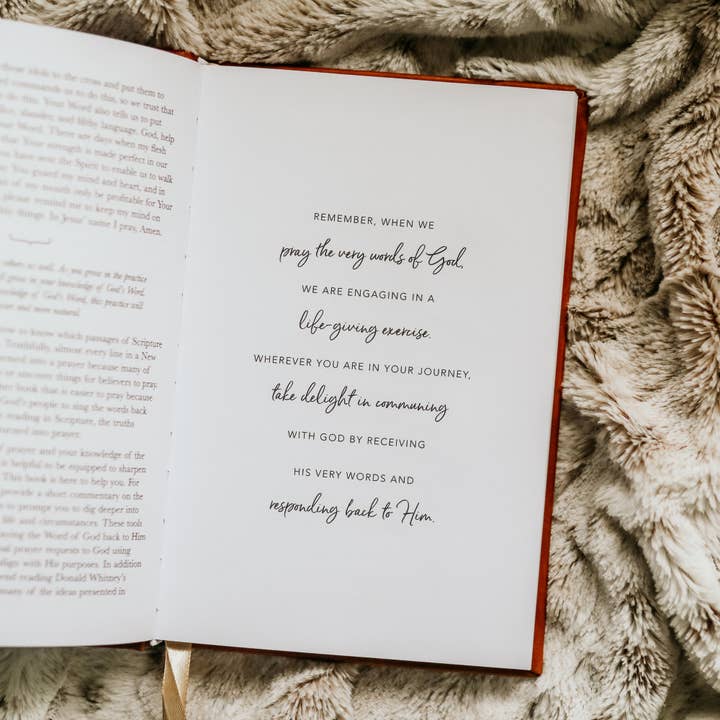 these idols to the cross and put them to
commands us to do this, so we trust that
do this. Your Word also tells us to put
slander, and filthy language. God, help
Your Word. There are days when my flesh
Your strength is made perfect in our
have sent the Spirit to enable us to walk
You guard my mind and heart, and in
of my mouth only be profitable for Your
please remind me to keep my mind on
things. In Jesus' name I pray, Amen.
others as well. As you grow in the practice
grow in your knowledge of God's Word,
knowledge of God's Word, this practice will
more and more natural.
to know which passages of Scripture
Truthfully, almost every line in a New
turned into a prayer because many of
or sincere things for believers to pray.
other book that is easier to pray because
God's people to sing the words back
reading in Scripture, the truths
turned into prayer.
prayer and your knowledge of the
is helpful to be equipped to sharpen
This book is here to help you. For
provide a short commentary on the
to prompt you to dig deeper into
life and circumstances. These tools
the Word of God back to Him
prayer requests to God using
align with His purposes. In addition
reading Donald Whitney's
many of the ideas presented in
REMEMBER, WHEN WE
pray the very words of God,
WE ARE ENGAGING IN A
life-giving exercise.
WHEREVER YOU ARE IN YOUR JOURNEY,
take delight in communing
WITH GOD BY RECEIVING
HIS VERY WORDS AND
responding back to Him.